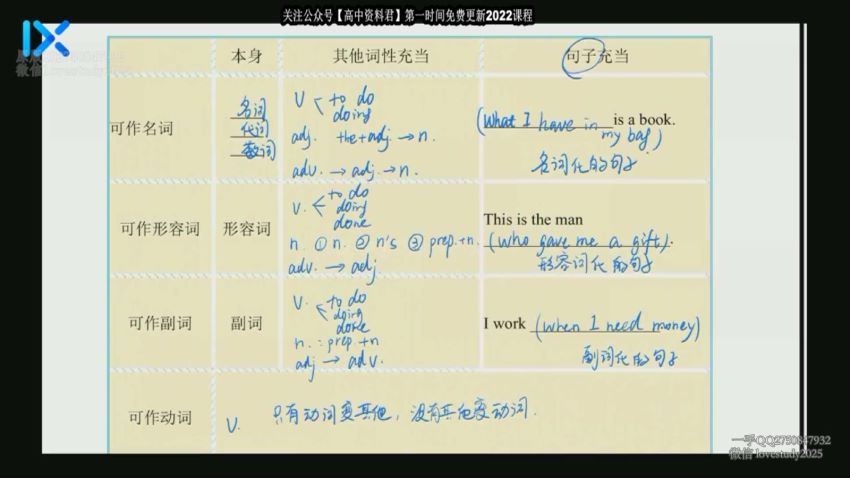 关注公众号【高中资料君】第一时间免费更新2022课程
微信lovestudy2025
本身 其他词性充当 句子充当
可作名词
名词
代词
数词
V to do
doing
adj. the+adj. → n.
adv. → adj. → n.
(What I have in my bag) is a book.
名词化的句子
可作形容词 形容词
v. to do
doing
done
n. ① n. ② n's ③ prep.+n.
adv. → adj.
This is the man
(who gave me a gift).
形容词化的句子
可作副词 副词
v. to do
doing
done
n. : prep.+n
adj → adv.
I work (when I need money)
副词化的句子
可作动词 V. 只有动词变其他，没有其他变动词.
一手QQ2750847932
微信 lovestudy2025